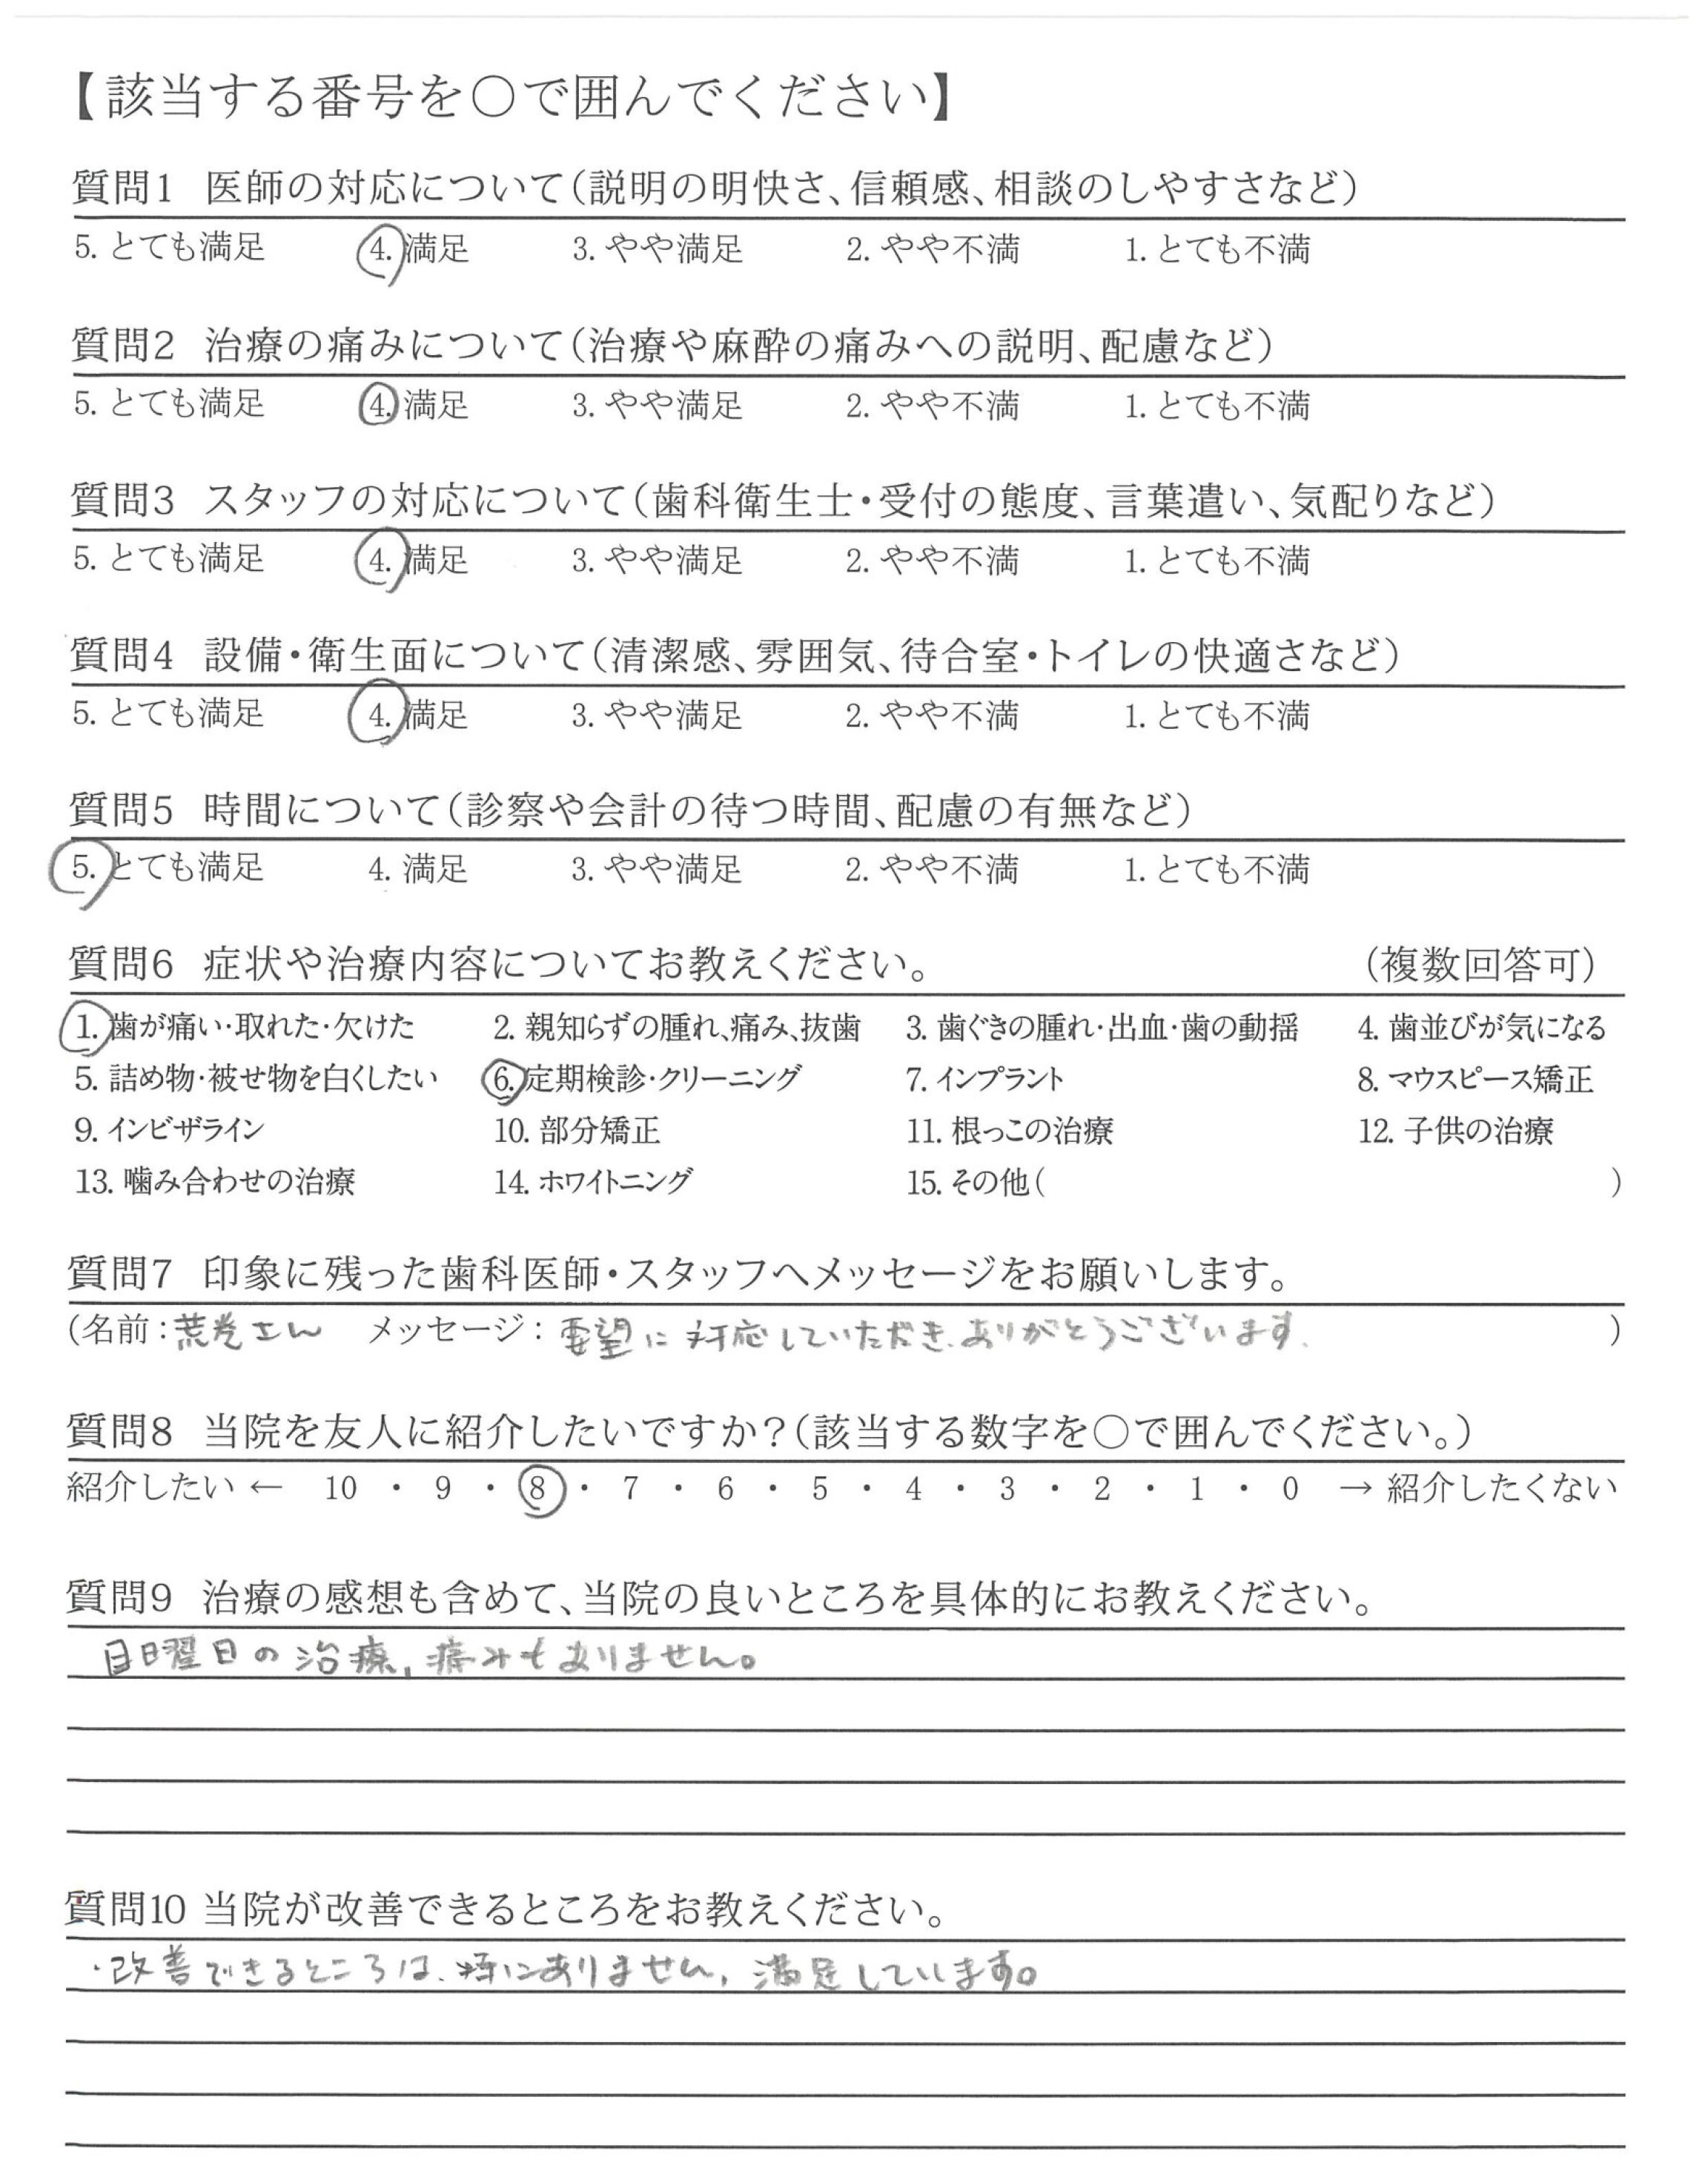 【該当する番号を○で囲んでください】
質問1 医師の対応について(説明の明快さ、信頼感、相談のしやすさなど)
5. とても満足 4. 満足 3. やや満足 2. やや不満 1. とても不満
質問2 治療の痛みについて(治療や麻酔の痛みへの説明、配慮など)
5. とても満足 4. 満足 3. やや満足 2. やや不満 1. とても不満
質問3 スタッフの対応について(歯科衛生士・受付の態度、言葉遣い、気配りなど)
5. とても満足 4. 満足 3. やや満足 2. やや不満 1. とても不満
質問4 設備・衛生面について(清潔感、雰囲気、待合室・トイレの快適さなど)
5. とても満足 4. 満足 3. やや満足 2. やや不満 1. とても不満
質問5 時間について(診察や会計の待つ時間、配慮の有無など)
5. とても満足 4. 満足 3. やや満足 2. やや不満 1. とても不満
質問6 症状や治療内容についてお教えください。 (複数回答可)
1. 歯が痛い・取れた・欠けた 2. 親知らずの腫れ、痛み、抜歯 3. 歯ぐきの腫れ・出血・歯の動揺 4. 歯並びが気になる
5. 詰め物・被せ物を白くしたい 6. 定期検診・クリーニング 7. インプラント 8. マウスピース矯正
9. インビザライン 10. 部分矯正 11. 根っこの治療 12. 子供の治療
13. 噛み合わせの治療 14. ホワイトニング 15. その他( )
質問7 印象に残った歯科医師・スタッフへメッセージをお願いします。
(名前:荒巻さん メッセージ:要望に対応していただき、ありがとうございます。 )
質問8 当院を友人に紹介したいですか?(該当する数字を○で囲んでください。)
紹介したい ← 10 ・ 9 ・ 8 ・ 7 ・ 6 ・ 5 ・ 4 ・ 3 ・ 2 ・ 1 ・ 0 → 紹介したくない
質問9 治療の感想も含めて、当院の良いところを具体的にお教えください。
日曜日の治療、痛みもありません。
質問10 当院が改善できるところをお教えください。
・改善できるところは、特にありません、満足しています。